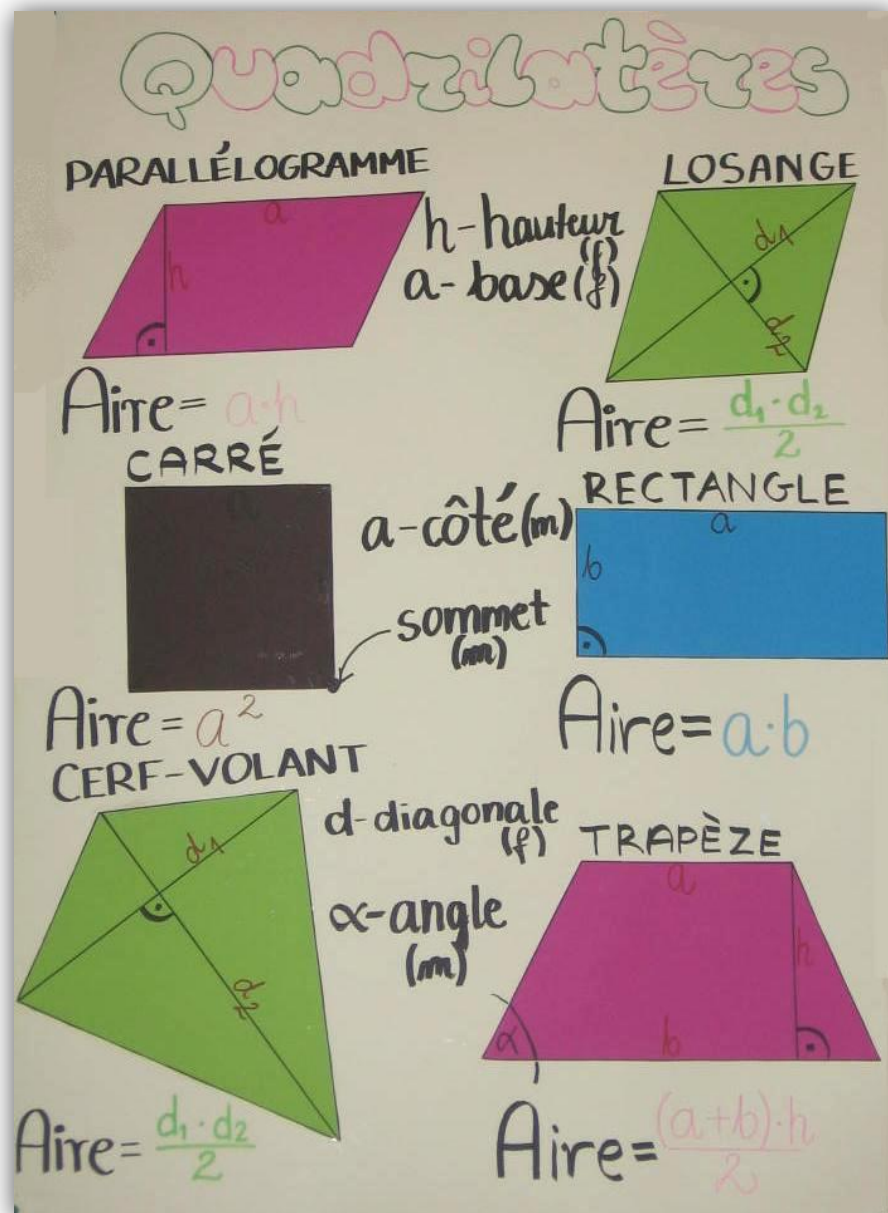 Quadrilatères
PARALLÉLOGRAMME
a
h
h-hauteur
(f)
a-base(f)
Aire= a·h
LOSANGE
d1
d2
Aire= d1·d2
2
CARRÉ
a
Aire= a²
a-côté(m)
sommet
(m)
RECTANGLE
a
b
Aire= a·b
CERF-VOLANT
d1
d2
Aire= d1·d2
2
d-diagonale
(f)
α-angle
(m)
TRAPÈZE
a
h
α
b
Aire= (a+b)·h
2